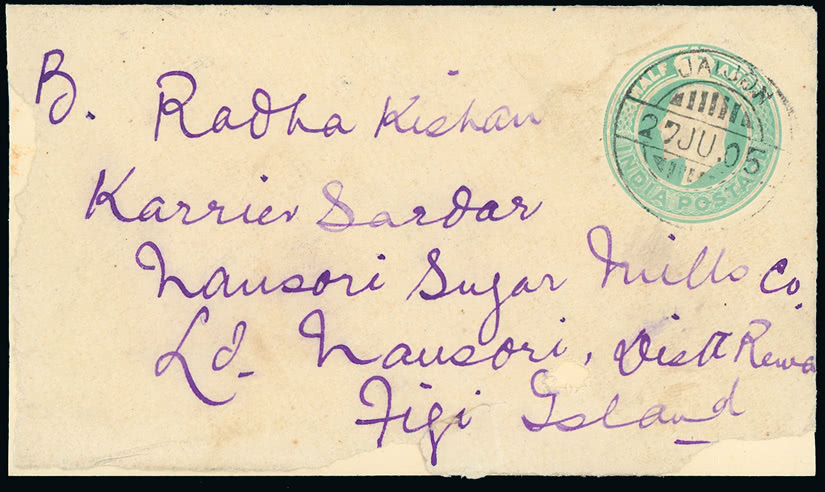 HALF ANNA
JAIJON
27 JU.05
INDIA POSTAGE
B. Radha Kishan
Karrier Sardar
Nausori Sugar Mills Co.
Ld. Nausori, Distt Rewa
Figi Island